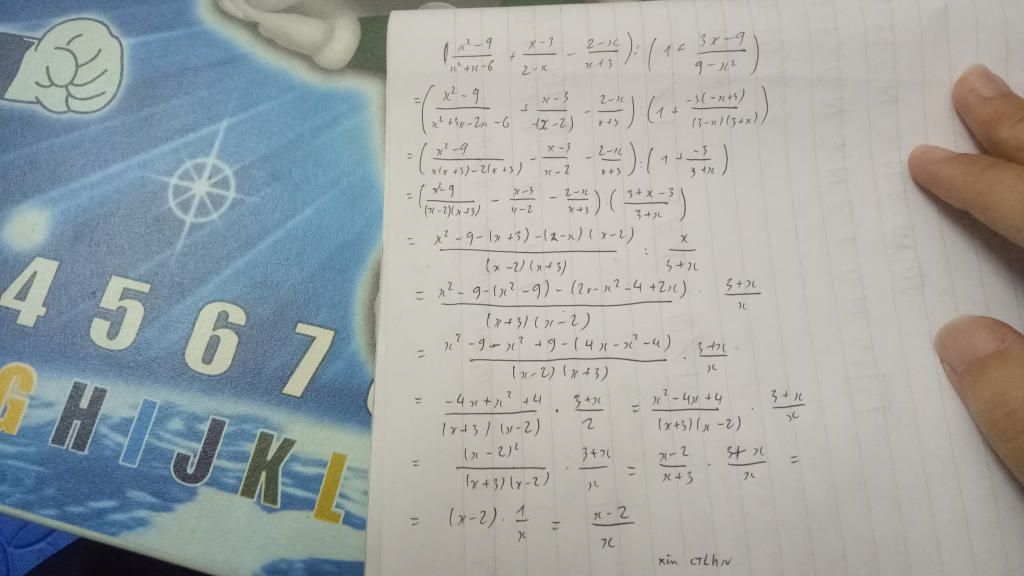 4 5 6 7
G H I J K L
(x²-9/x²+x-6 + x-3/2-x - 2-x/x+3) : (1 + 3x-9/9-x²)
= (x²-9/x²+3x-2x-6 + x-3/-(x-2) - 2-x/x+3) (1 + -3(-x+3)/(3-x)(3+x))
= (x²-9/x(x+3)-2(x+3) - x-3/x-2 - 2-x/x+3) : (1 + -3/3+x)
= (x²-9/(x-2)(x+3) - x-3/x-2 - 2-x/x+3) : (3+x-3/3+x)
= x²-9-(x+3)-(2-x)(x-2)/(x-2)(x+3) : x/3+x
= x²-9-(x²-9)-(2x-x²-4+2x)/(x+3)(x-2) . 3+x/x
= x²-9-x²+9-(4x-x²-4)/(x-2)(x+3) . 3+x/x
= -4x+x²+4/(x+3)(x-2) . 3+x/2 = x²-4x+4/(x+3)(x-2) . 3+x/x
= (x-2)²/(x+3)(x-2) . 3+x/x = x-2/x+3 . 3+x/x =
= (x-2) . 1/x = x-2/x
xin CTLHN